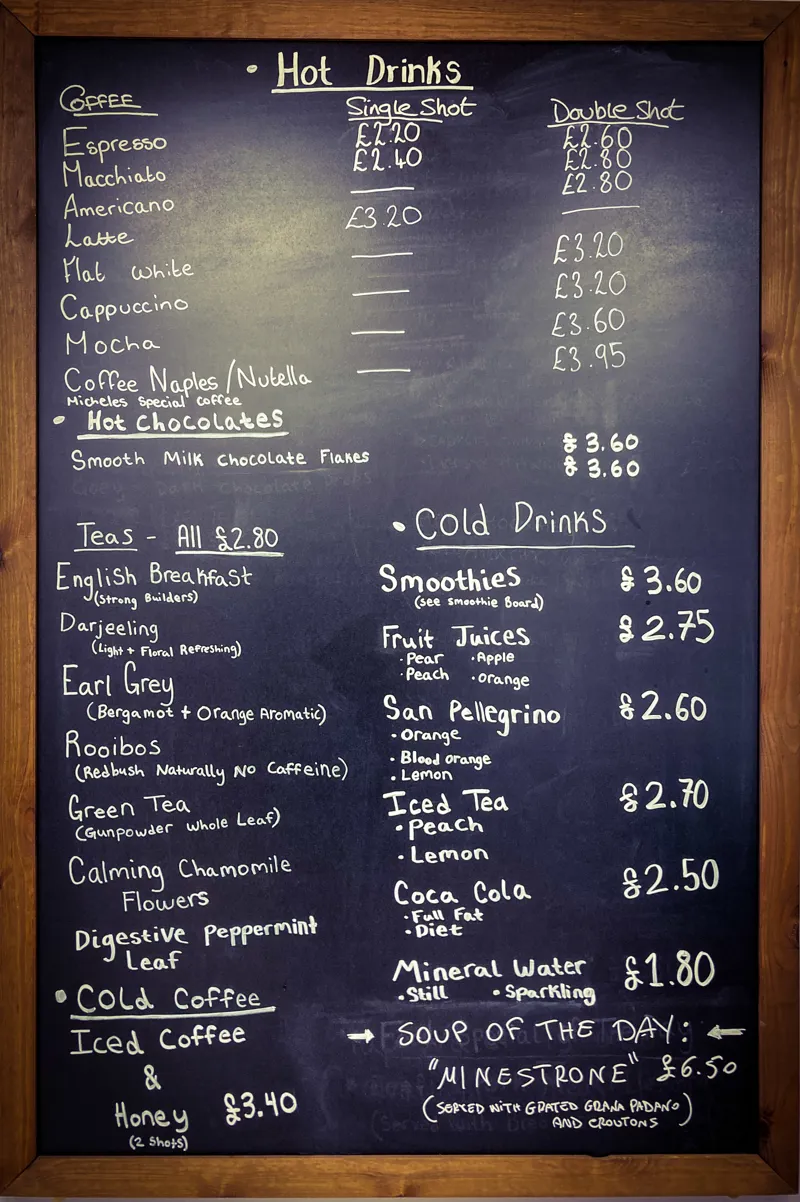 • Hot Drinks
COFFEE Single Shot Double Shot
Espresso £2.20 £2.60
Macchiato £2.40 £2.80
Americano — £2.80
Latte £3.20 —
Flat white — £3.20
Cappuccino — £3.20
Mocha — £3.60
Coffee Naples/Nutella — £3.95
Micheles Special Coffee
• Hot Chocolates
£3.60
Smooth Milk Chocolate Flakes £3.60
Teas - All £2.80
English Breakfast
(Strong Builders)
Darjeeling
(Light + Floral Refreshing)
Earl Grey
(Bergamot + Orange Aromatic)
Rooibos
(Redbush Naturally No Caffeine)
Green Tea
(Gunpowder Whole Leaf)
Calming Chamomile
Flowers
Digestive Peppermint
Leaf
• Cold Coffee
Iced Coffee
&
Honey £3.40
(2 Shots)
• Cold Drinks
Smoothies £3.60
(see Smoothie Board)
Fruit Juices £2.75
• Pear • Apple
• Peach • Orange
San Pellegrino £2.60
• Orange
• Blood Orange
• Lemon
Iced Tea £2.70
• Peach
• Lemon
Coca Cola £2.50
• Full Fat
• Diet
Mineral Water £1.80
• Still • Sparkling
→ SOUP OF THE DAY: ←
"MINESTRONE" £6.50
(SERVED WITH GRATED GRANA PADANO
AND CROUTONS)